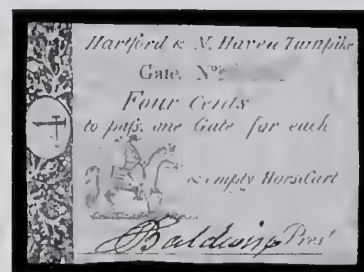 Hartford & N. Haven Turnpike
Gate. Nº
Four Cents
to paſs. one Gate for each
& empty HorsCart
Baldwin Presᵗ